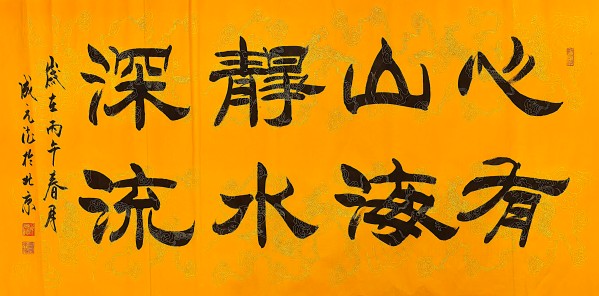 心有
山海
静水
深流
歲在丙午春月
成元於北京